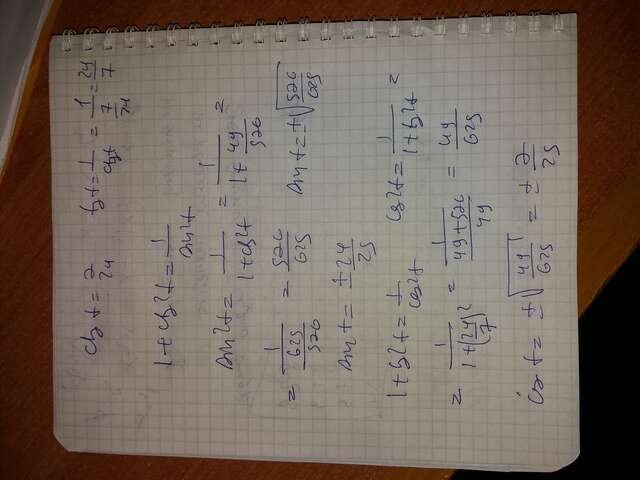 ctg t = 7/24 tg t = 1/ctg t = 1/(7/24) = 24/7
1 + ctg²t = 1/sin²t
sin²t = 1/(1 + ctg²t) = 1/(1 + 49/576) =
= 1/(625/576) = 576/625 sin t = ±√(576/625)
sin t = ± 24/25
1 + tg²t = 1/cos²t cos²t = 1/(1 + tg²t) =
= 1/(1 + (24/7)²) = 1/((49 + 576)/49) = 49/625
cos t = ±√(49/625) = ± 7/25